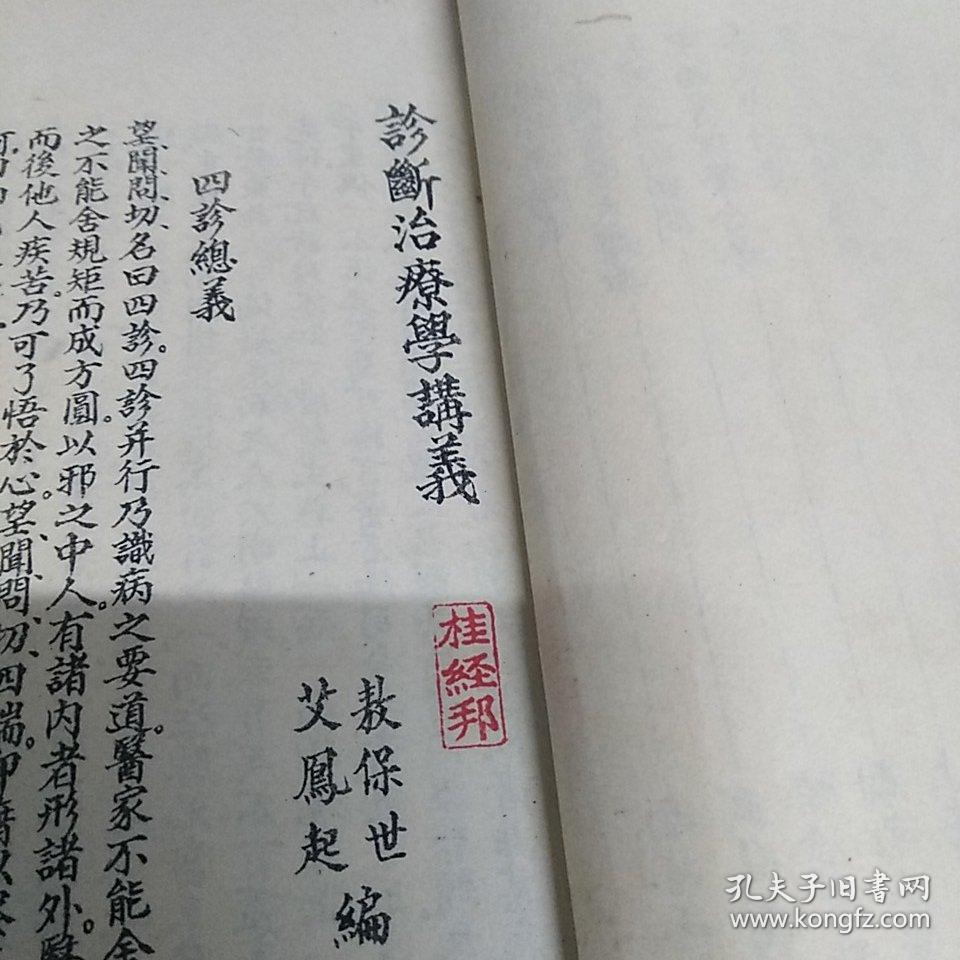 診斷治療學講義
桂経邦
敖保世
艾鳳起
編
四診總義
望、聞、問、切、名曰四診。四診并行乃識病之要道。醫家不能舍
之不能舍規矩而成方圓。以邪之中人。有諸内者形諸外。醫
而後他人疾苦。乃可了悟於心。望、聞、問、切、四端。即
孔夫子旧书网
www.kongfz.com